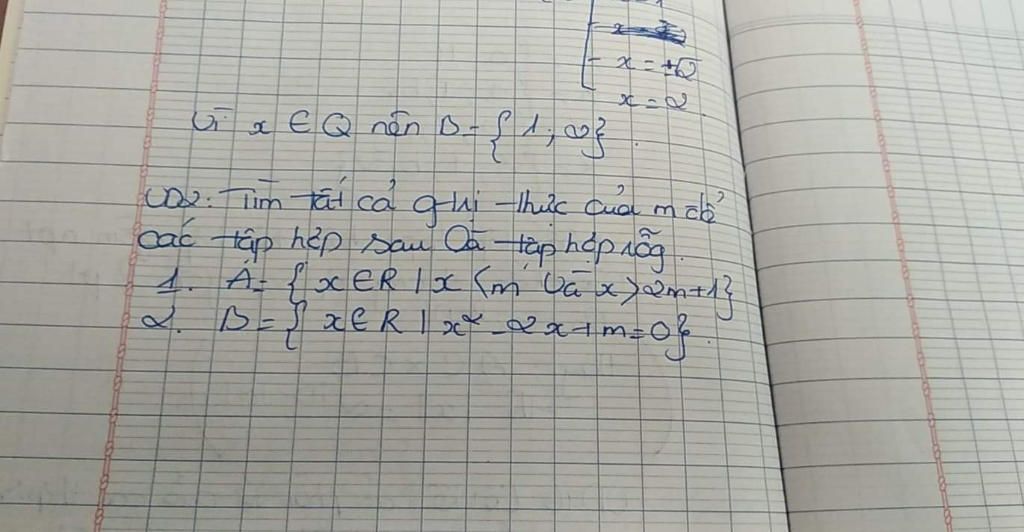 x = ±√2
x = 2
Vì x ∈ Q nên B = {1; 2}.
VD2: Tìm tất cả giá trị thực của m để
các tập hợp sau là tập hợp rỗng.
1. A = { x ∈ R | x < m và x > 2m + 1}
2. B = { x ∈ R | x² - 2x + m = 0}.